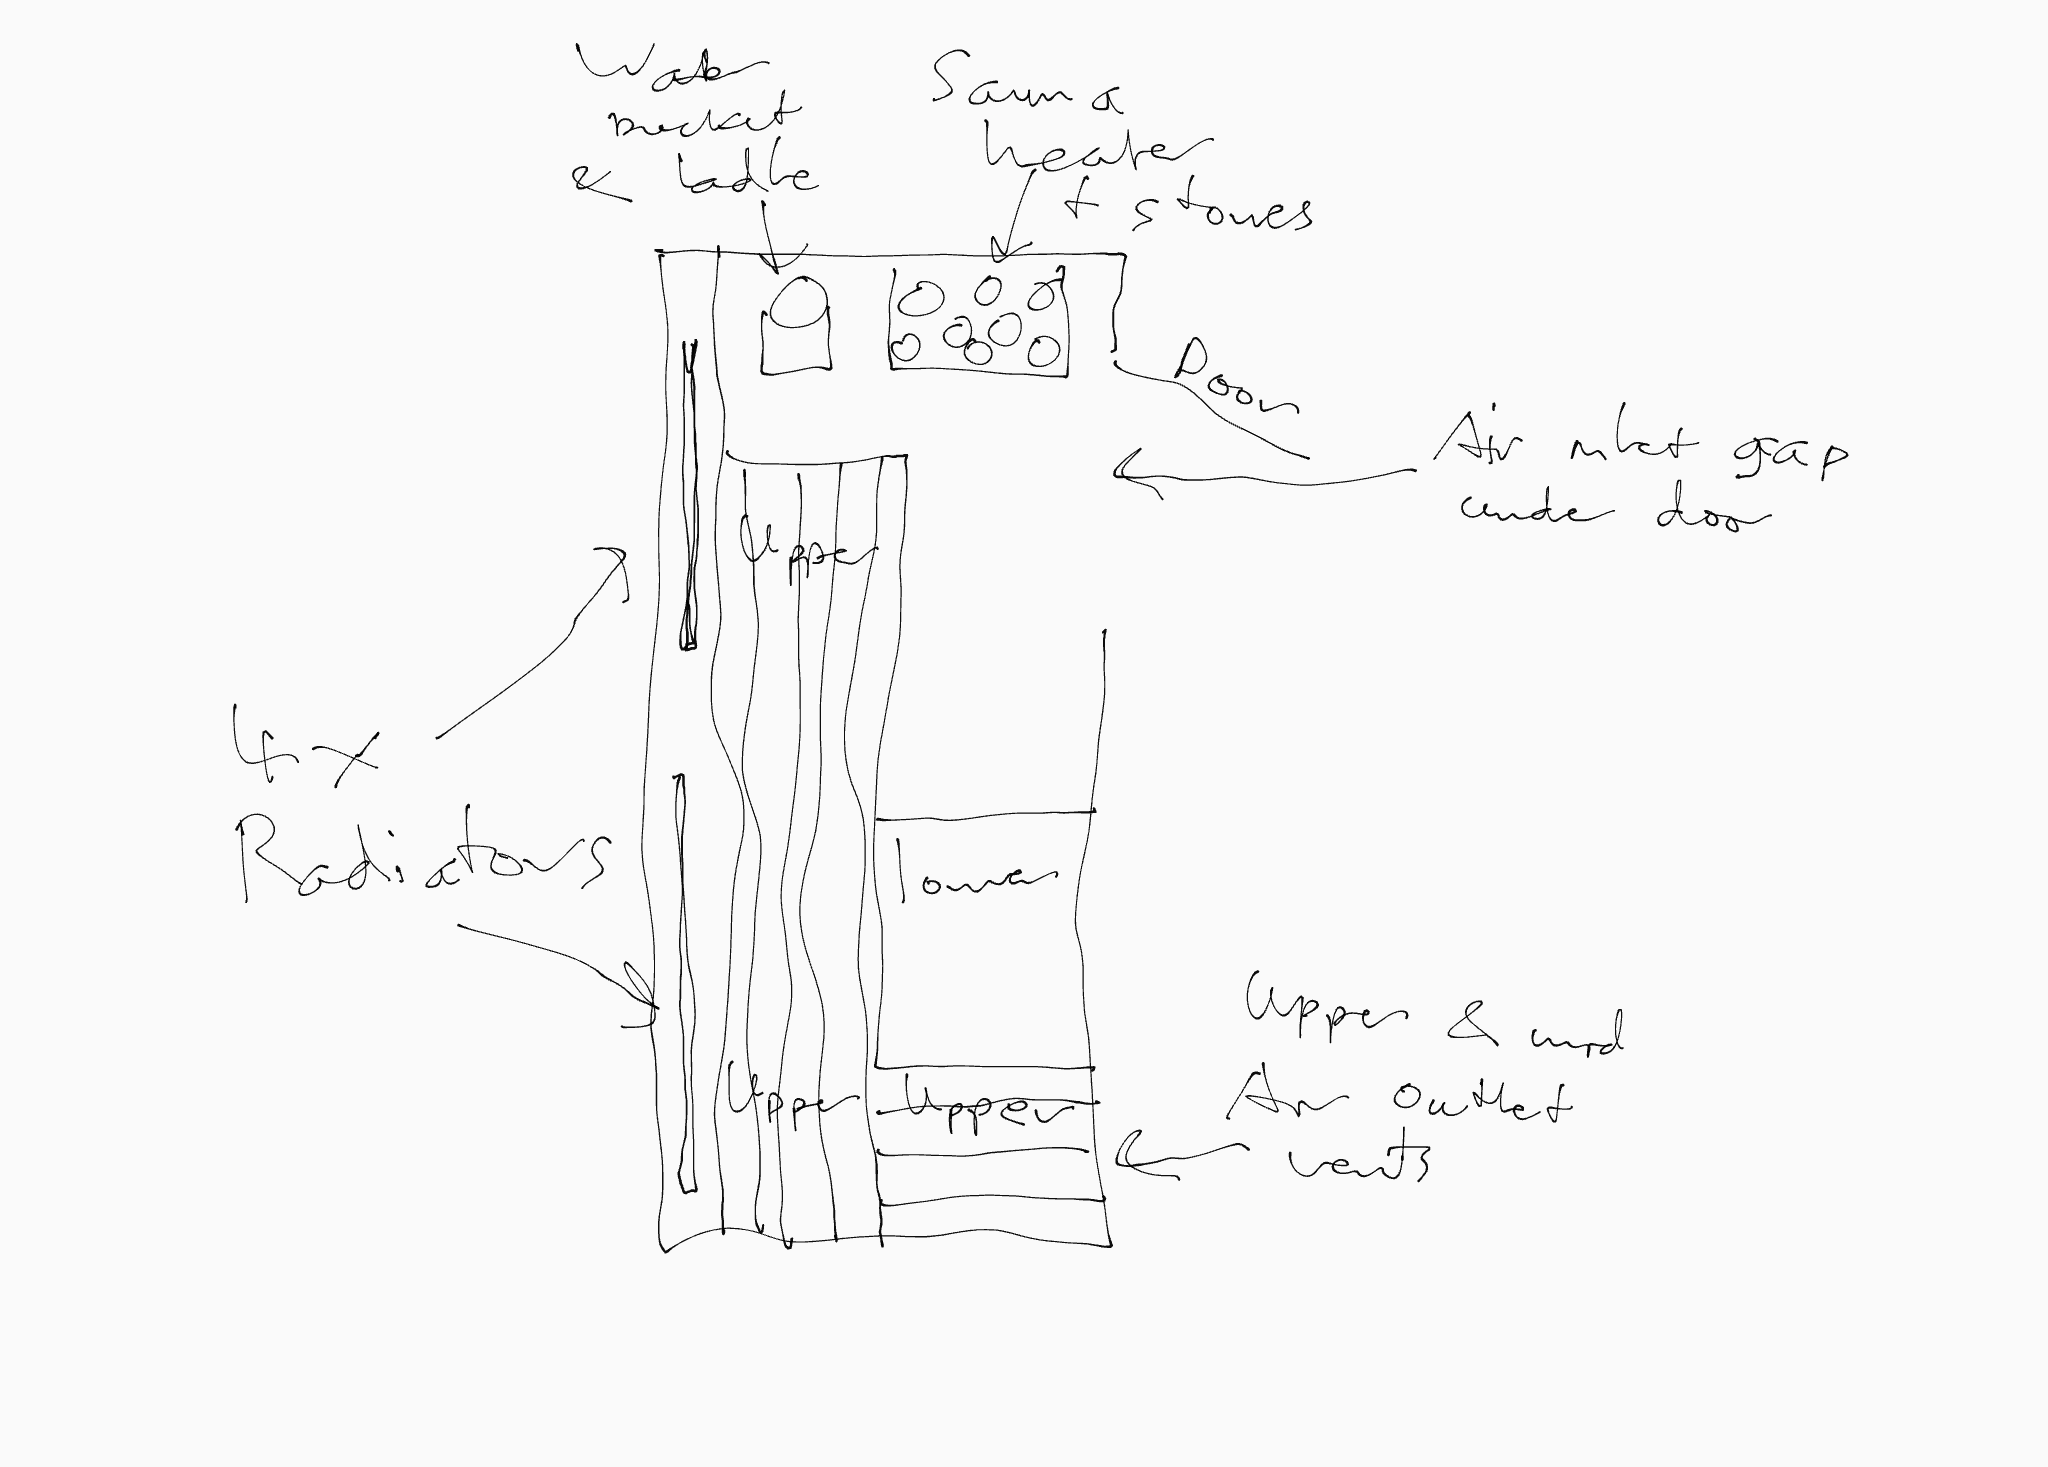 Water
bucket
& ladle
Sauna
heater
+ stones
Door
Air inlet gap
under door
Upper
4x
Radiators
lower
Upper & mid
Air outlet
vents
Upper
Upper